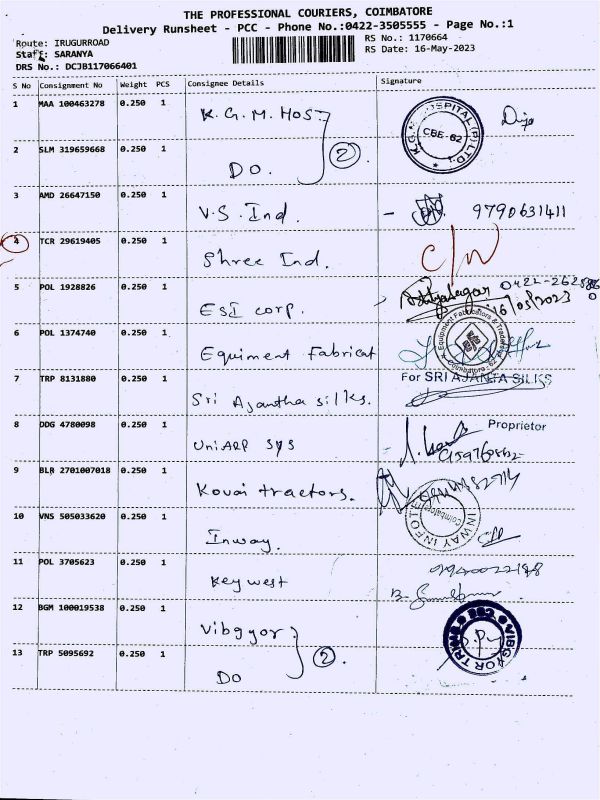 THE PROFESSIONAL COURIERS, COIMBATORE
Delivery Runsheet - PCC - Phone No.:0422-3505555 - Page No.:1
Route: IRUGURROAD
RS No.: 1170664
Staff: SARANYA
RS Date: 16-May-2023
DRS No.: DCJB117066401
S No Consignment No Weight PCS Consignee Details Signature
1 MAA 100463278 0.250 1 K.G.M. HOS.
CBE-62
2 SLM 319659668 0.250 1 DO. 2
3 AMD 26647150 0.250 1 V.S. Ind. - 9790631411
4 TCR 29619405 0.250 1 Shree Ind. C/N
5 POL 1928826 0.250 1 ESI corp.
16/05/2023
6 POL 1374740 0.250 1 Equiment Fabricat
Equipment Fabricators & Traders
Coimbatore - 62
7 TRP 8131880 0.250 1 Sri Ajantha silks.
For SRI AJANTA SILKS
Proprietor
8 DDG 4780098 0.250 1 UniARP SYS
9 BLR 2701007018 0.250 1 Kovai tractors.
10 VNS 505033620 0.250 1 Inway.
INWAY INFOTE
Coimbatore
11 POL 3705623 0.250 1 Key west
12 BGM 100019538 0.250 1 Vibgyor
13 TRP 5095692 0.250 1 DO 2.